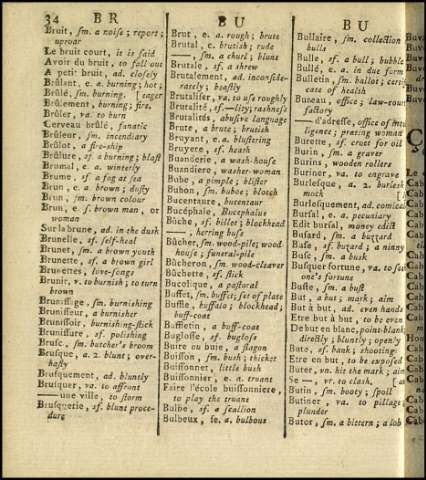 34
BR
BU
BU
Bruit, ſm. a noiſe ; report ;
uproar
Le bruit court, it is ſaid
Avoir du bruit, to fall out
A petit bruit, ad. cloſely
Brûlant, e. a. burning ; hot ;
Brûlé, ſm. burning. [eager
Brûlement, burning, fire,
Brûler, va. to burn
Cerveau brûlé, fanatic
Brûleur, ſm. incendiary
Brûlot, a fire-ſhip
Brûlure, ſf. a burning ; blaſt
Brumal, e. a. winterly
Brume, ſf. a fog at ſea
Brun, e. a. brown ; duſky
Brun, ſm. brown colour
Brun, e. ſ. brown man, or
woman
Sur la brune, ad. in the dusk
Brunelle, ſf. ſelf-heal
Brunet, ſm. a brown youth
Brunette, ſf. a brown girl
Brunettes, love-ſongs
Brunir, v. to burnish ; to turn
brown
Bruniſſage, ſm. burniſhing
Bruniſſeur, a burniſher
Bruniſſoir, burniſhing-ſtick
Bruniſſure, ſf. poliſhing
Bruſc, ſm. butcher's broom
Bruſque, a. 2. blunt ; over-
haſty
Bruſquement, ad. bluntly
Bruſquer, va. to affront
— une ville, to ſtorm
Bruſquerie, ſf. blunt proce-
dure
Brut, e. a. rough ; brute
Brutal, e. brutiſh ; rude
—, ſm. a churl ; blunt
Brutale, ſf. a ſhrew
Brutalement, ad. inconſide-
rately ; beaſtly
Brutaliſer, va. to uſe roughly
Brutalité, ſf. —lity ; raſhneſs
Brutalités, abuſive language
Brute, a brute ; brutiſh
Bruyant, e. a. bluſtering
Bruyere, ſf. heath
Buanderie, a waſh-houſe
Buandiere, waſher-woman
Bube, a pimple ; bliſter
Bubon, ſm. buboe ; blotch
Bucentaure, bucentaur
Bucéphale, Bucephalus
Bûche, ſf. billet ; blockhead
—, herring buſs
Bûcher, ſm. wood-pile ; wood
houſe ; funeral-pile
Bûcheron, ſm. wood-cleaver
Bûchette, ſf. ſtick
Bucolique, a paſtoral
Buffet, ſm. buffet ; ſet of plate
Buffle, buffalo ; blockhead ;
buff-coat
Buffletin, a buff-coat
Bugloſſe, ſf. bugloſs
Buire ou buie, a flagon
Buiſſon, ſm. buſh ; thicket
Buiſſonnet, little buſh
Buiſſonnier, e. a. truant
Faire l'école buiſſonniere,
to play the truant
Bulbe, ſf. a ſcallion
Bulbeux, ſe, a. bulbous
Bullaire, ſm. collection
bulls
Bulle, ſf. a bull ; bubble
Bullé, e. a. in due form
Bulletin, ſm. ballot ;
caſe of health
Bureau, office ; law-court
factory
— d'adreſſe, office of
ligence ; prating woman
Burette, ſf. cruet for oil
Burin, ſm. a graver
Burins, wooden rollers
Buriner, va. to engrave
Burleſque, a. 2. burleſk
mock
Burleſquement, ad. comical
Burſal, e. a. pecuniary
Edit burſal, money edict
Buſard, ſm. a buzzard
Buſe, ſf. buzzard ; a ninny
Buſc, ſm. a buſk
Buſquer fortune, va. to
one's fortune
Buſte, ſm. a buſt
But, a but ; mark ; aim
But à but, ad. even hand
Etre but à but, to be even
De but en blanc, point-blank
directly ; bluntly ; openly
Bute, ſf. bank ; ſhooting
Etre en but, to be expoſed
Buter, vn. hit the mark ; aim
Se —, vr. to claſh.
Butin, ſm. booty ; ſpoil
Butiner, va. to pillage
plunder
Butor, ſm. a bittern ; a lob